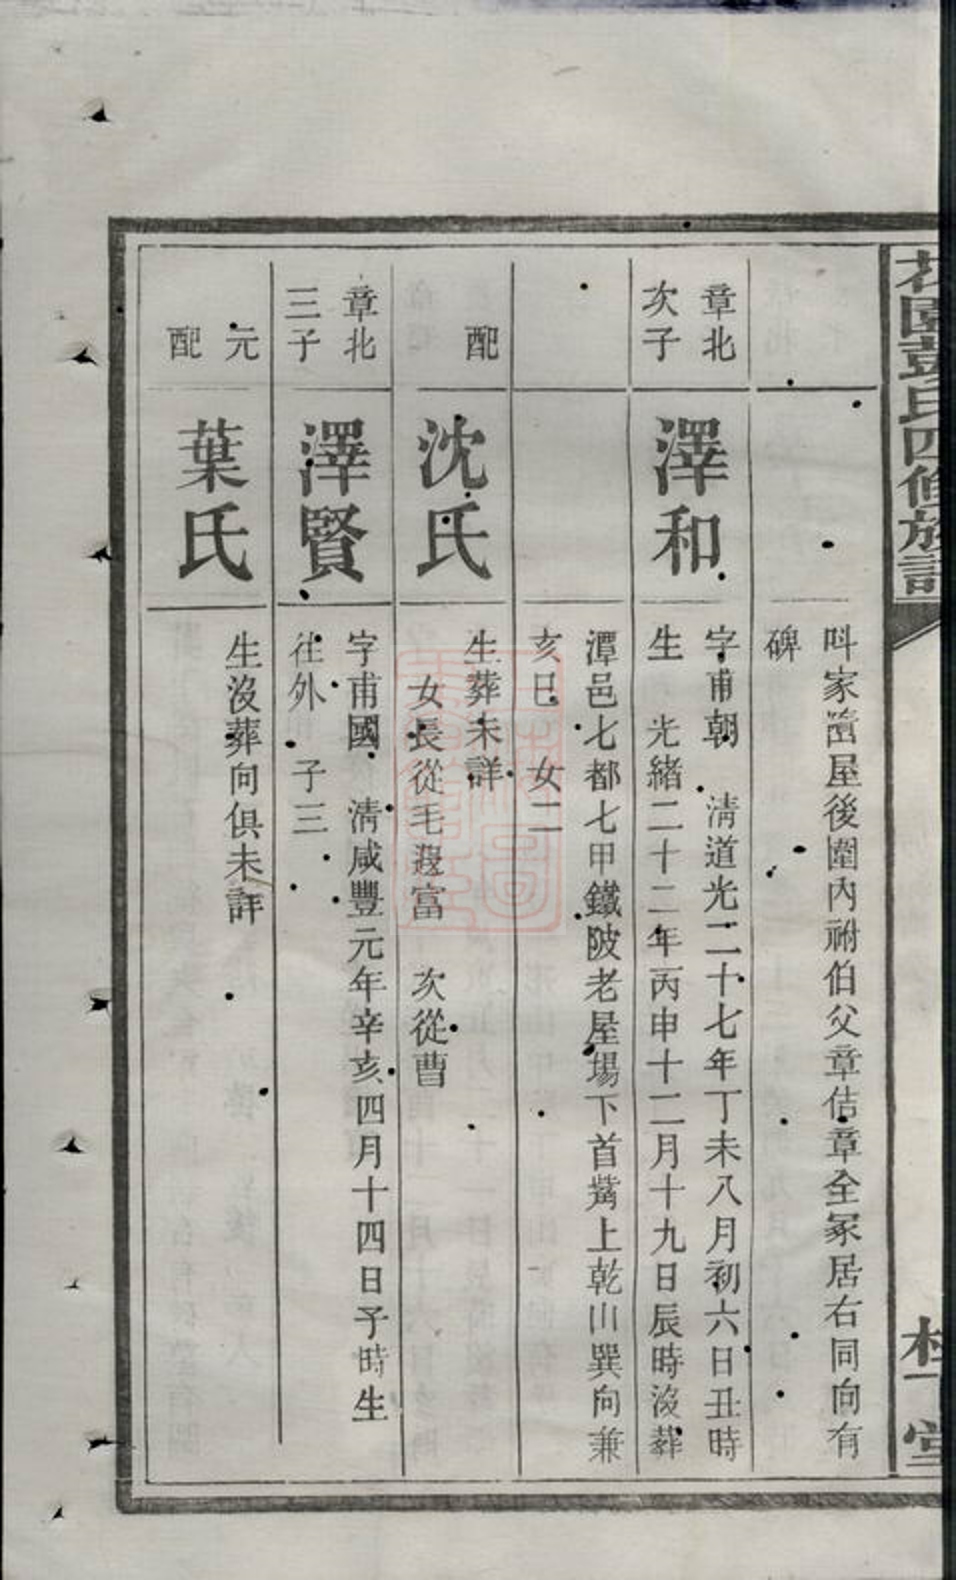 花園彭氏四修族譜
桂堂
呌家嵴屋後圍內祔伯父章佶章全冢居右同向有
碑
章北
次子
澤和
字甫朝　清道光二十七年丁未八月初六日丑時
生　光緒二十二年丙申十二月十九日辰時沒葬
潭邑七都七甲鐵陂老屋場下首觜上乾山巽向兼
亥巳　女二
配
沈氏
生葬未詳
女長從毛　富　次從曹
章北
三子
澤賢
字甫國　清咸豐元年辛亥四月十四日子時生
往外　子三
元
配
葉氏
生沒葬向俱未詳